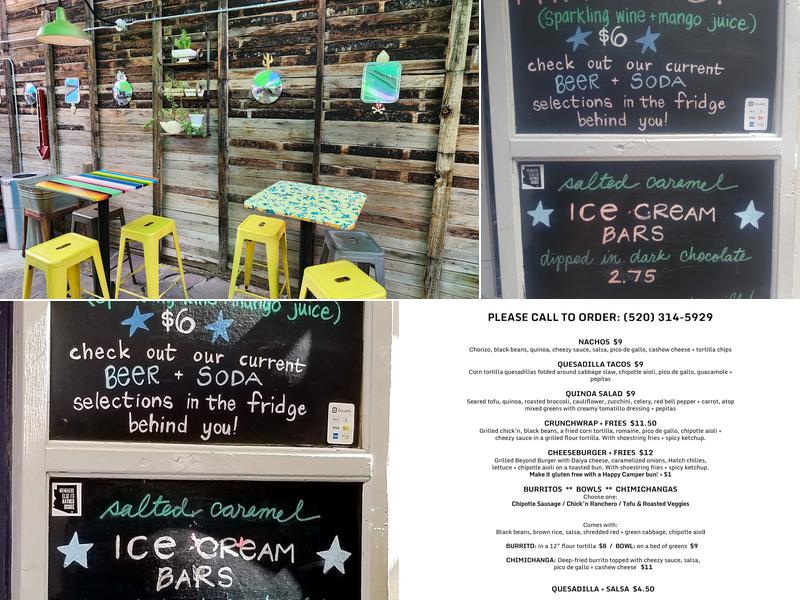 (sparkling wine + mango juice)
$6
check out our current
BEER + SODA
selections in the fridge
behind you!
Square
NOWHERE
ELSE I'D
RATHER
BISBEE
salted caramel
ICE CREAM
BARS
dipped in dark chocolate
2.75
(sparkling wine + mango juice)
$6
check out our current
BEER + SODA
selections in the fridge
behind you!
Square
VISA
NOWHERE
ELSE I'D
RATHER
BISBEE
salted caramel
ICE CREAM
BARS
PLEASE CALL TO ORDER: (520) 314-5929
NACHOS $9
Chorizo, black beans, quinoa, cheezy sauce, salsa, pico de gallo, cashew cheese + tortilla chips
QUESADILLA TACOS $9
Corn tortilla quesadillas folded around cabbage slaw, chipotle aioli, pico de gallo, guacamole +
pepitas
QUINOA SALAD $9
Seared tofu, quinoa, roasted broccoli, cauliflower, zucchini, celery, red bell pepper + carrot, atop
mixed greens with creamy tomatillo dressing + pepitas
CRUNCHWRAP + FRIES $11.50
Grilled chick'n, black beans, a fried corn tortilla, romaine, pico de gallo, chipotle aioli +
cheezy sauce in a grilled flour tortilla. With shoestring fries + spicy ketchup.
CHEESEBURGER + FRIES $12
Grilled Beyond Burger with Daiya cheese, caramelized onions, Hatch chilies,
lettuce + chipotle aioli on a toasted bun. With shoestring fries + spicy ketchup.
Make it gluten free with a Happy Camper bun! + $1
BURRITOS ** BOWLS ** CHIMICHANGAS
Choose one:
Chipotle Sausage / Chick'n Ranchero / Tofu & Roasted Veggies
Comes with:
Black beans, brown rice, salsa, shredded red + green cabbage, chipotle aioli
BURRITO: in a 12" flour tortilla $8 / BOWL: on a bed of greens $9
CHIMICHANGA: Deep-fried burrito topped with cheezy sauce, salsa,
pico de gallo + cashew cheese $11
QUESADILLA + SALSA $4.50